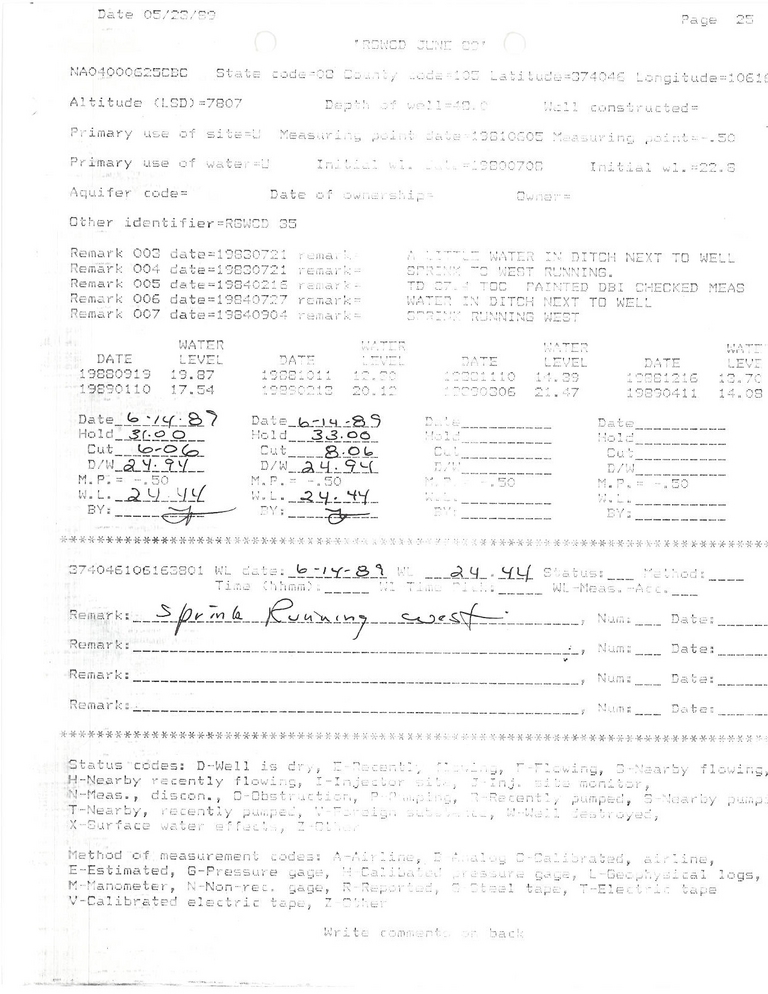 Date 05/23/89 Page 25
"RGWCD JUNE 89"
NA04000625CBC State code=08 County code=105 Latitude=374046 Longitude=10616
Altitude (LSD)=7807 Depth of well=48.0 Well constructed=
Primary use of site=U Measuring point date=19810605 Measuring point=-.50
Primary use of water=U Initial wl. date=19800708 Initial wl.=22.8
Aquifer code= Date of ownership= Owner=
Other identifier=RGWCD 35
Remark 003 date=19830721 remark= A LITTLE WATER IN DITCH NEXT TO WELL
Remark 004 date=19830721 remark= SPRINK TO WEST RUNNING.
Remark 005 date=19840216 remark= TD TOC PAINTED DBI CHECKED MEAS
Remark 006 date=19840727 remark= WATER IN DITCH NEXT TO WELL
Remark 007 date=19840904 remark= SPRINK RUNNING WEST
WATER WATER WATER WATE
DATE LEVEL DATE LEVEL DATE LEVEL DATE LEVE
19880919 19.87 19881011 19881110 14.39 19881216 13.70
19890110 17.54 19890213 20.12 19890306 21.47 19890411 14.08
Date 6-14-89 Date 6-14-89 Date Date
Hold 31.00 Hold 33.00 Hold Hold
Cut 6.06 Cut 8.06 Cut Cut
D/W 24.94 D/W 24.94 D/W D/W
M.P.= -.50 M.P.= -.50 M.P.= -.50 M.P.= -.50
W.L. 24.44 W.L. 24.44 W.L. W.L.
BY: BY: BY: BY:
374046106163801 WL date: 6-14-89 WL 24.44 Status:___ Method:____
Time (hhmm):_____ Wl Time Dich:_____ WL-Meas.-Acc.___
Remark: Sprink Running west, Num:___ Date:
Remark:, Num:___ Date:
Remark:, Num:___ Date:
Remark:, Num:___ Date:
Status codes: D-Well is dry, E-Recently flowing, F-Flowing, G-Nearby flowing,
H-Nearby recently flowing, I-Injector site, J-Inj. site monitor,
N-Meas., discon., O-Obstruction, P-Pumping, R-Recently pumped, S-Nearby pumpi
T-Nearby, recently pumped, V-Foreign substance, W-Well destroyed,
X-Surface water effects, Z-Other
Method of measurement codes: A-Airline, B Analog C-Calibrated, airline,
E-Estimated, G-Pressure gage, H-Calibated pressure gage, L-Geophysical logs,
M-Manometer, N-Non-rec. gage, R-Reported, S Steel tape, T-Electric tape
V-Calibrated electric tape, Z-Other
Write comments on back